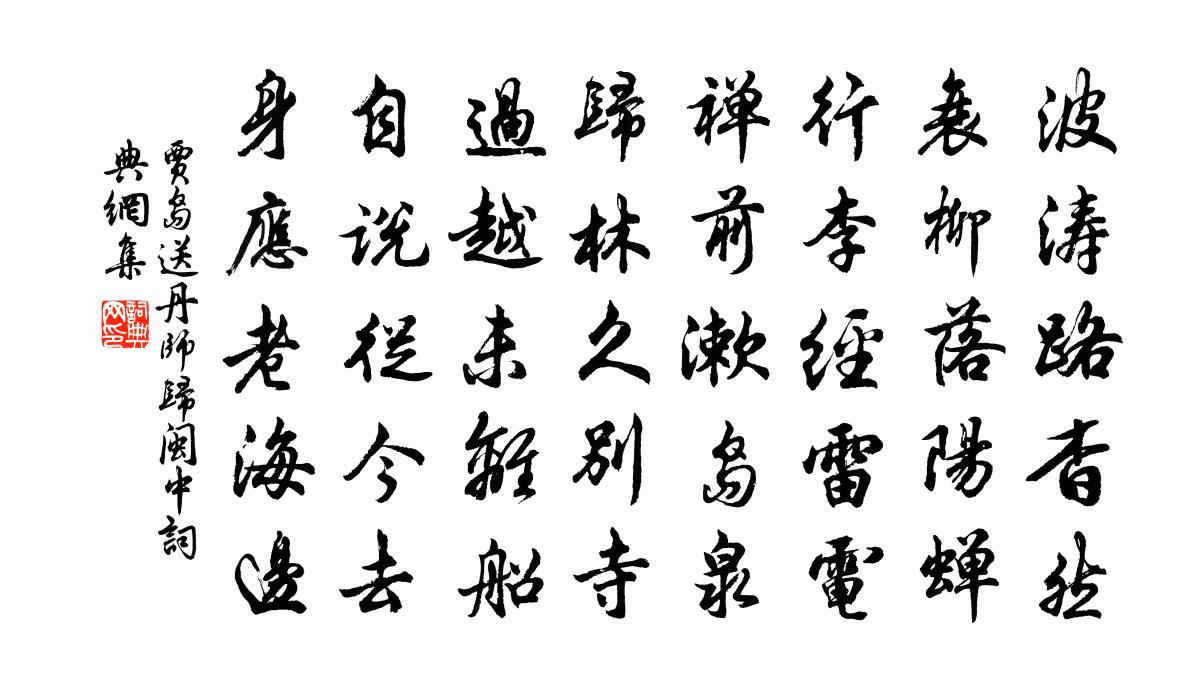 波濤路杳然
衰柳落陽蟬
行李經雷電
禅前漱島泉
歸林久別寺
過越未離船
自説從今去
身應老海邊
賈島送丹師歸閩中詞
典網集
詞典
网印